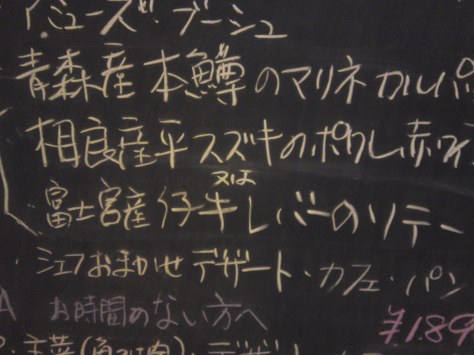 アミューズ・ブーシュ
青森産本鱒のマリネ カルパ
相良産平スズキのポワレ 赤ワイ
又は
富士宮産仔牛レバーのソテー
・シェフおまかせデザート・カフェ・パン
A お時間のない方へ ¥1,89
・主菜(魚又は肉)・デザート